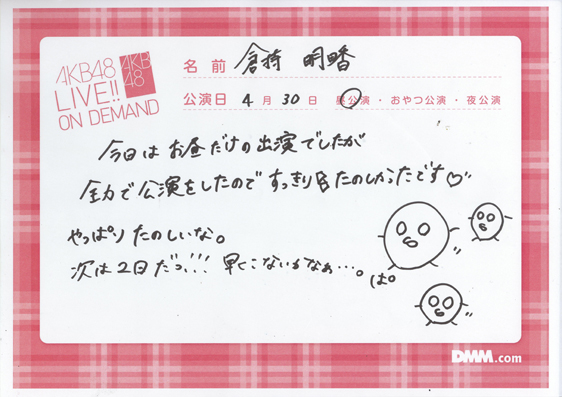 AKB48
LIVE!!
ON DEMAND
AKB
48
名前 倉持 明日香
公演日 4月30日 昼公演・おやつ公演・夜公演
今日は お昼だけの出演でしたが
全力で公演をしたので すっきり&たのしかったです♡
やっぱり たのしいな。
次は2日だっ!!! 早くこないかなぁ…。
ぱ。
DMM.com